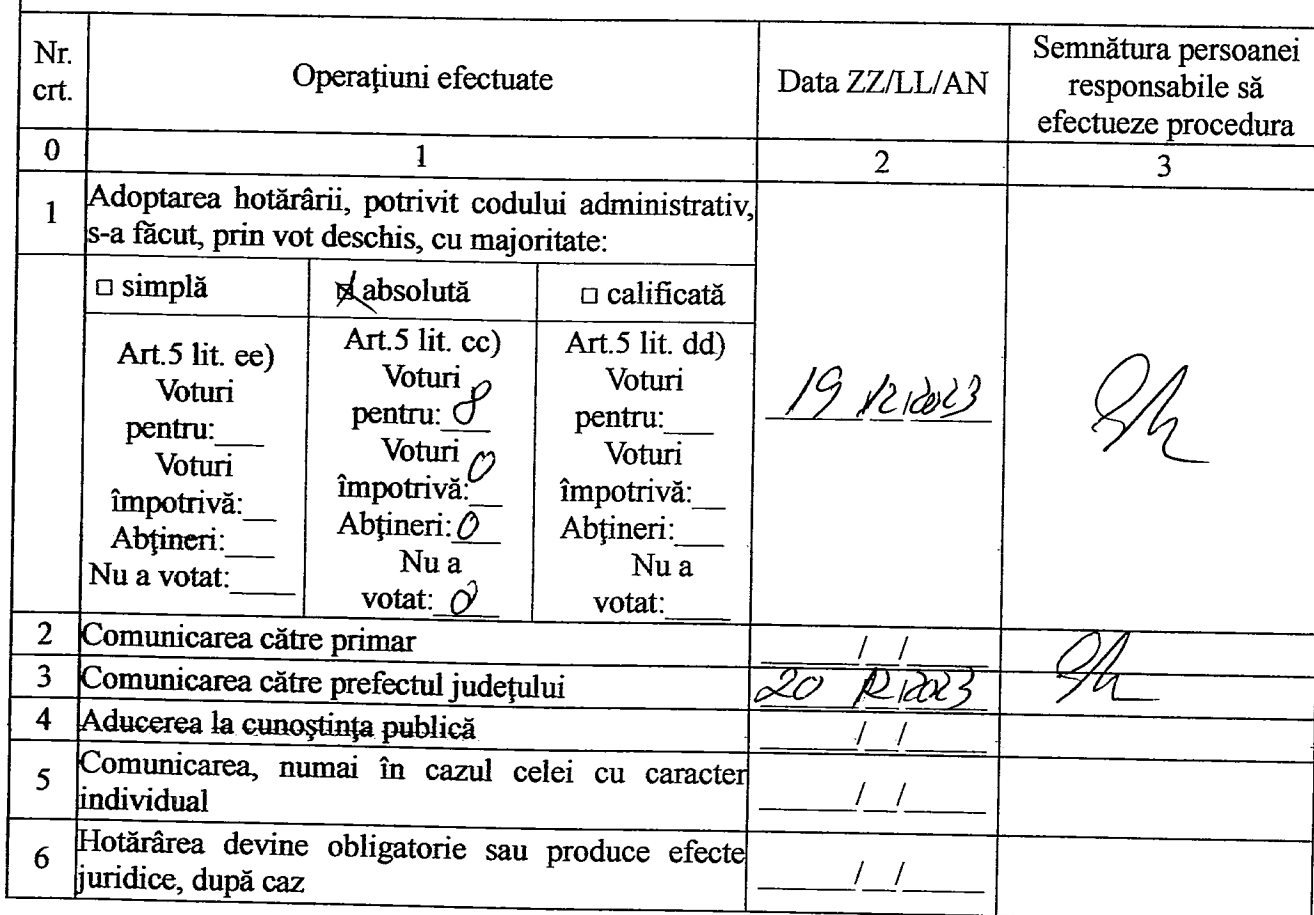 Nr.
crt.
Operaţiuni efectuate
Data ZZ/LL/AN
Semnătura persoanei
responsabile să
efectueze procedura
0
1
2
3
1
Adoptarea hotărârii, potrivit codului administrativ,
s-a făcut, prin vot deschis, cu majoritate:
□ simplă
☒ absolută
□ calificată
Art.5 lit. ee)
Voturi
pentru:___
Voturi
împotrivă:__
Abţineri:___
Nu a votat:____
Art.5 lit. cc)
Voturi
pentru: 8
Voturi
împotrivă: 0
Abţineri: 0
Nu a
votat: 0
Art.5 lit. dd)
Voturi
pentru:___
Voturi
împotrivă:__
Abţineri:___
Nu a
votat:___
19 12/2023
2
Comunicarea către primar
/ /
3
Comunicarea către prefectul judeţului
20 12/2023
4
Aducerea la cunoştinţa publică
/ /
5
Comunicarea, numai în cazul celei cu caracter
individual
/ /
6
Hotărârea devine obligatorie sau produce efecte
juridice, după caz
/ /